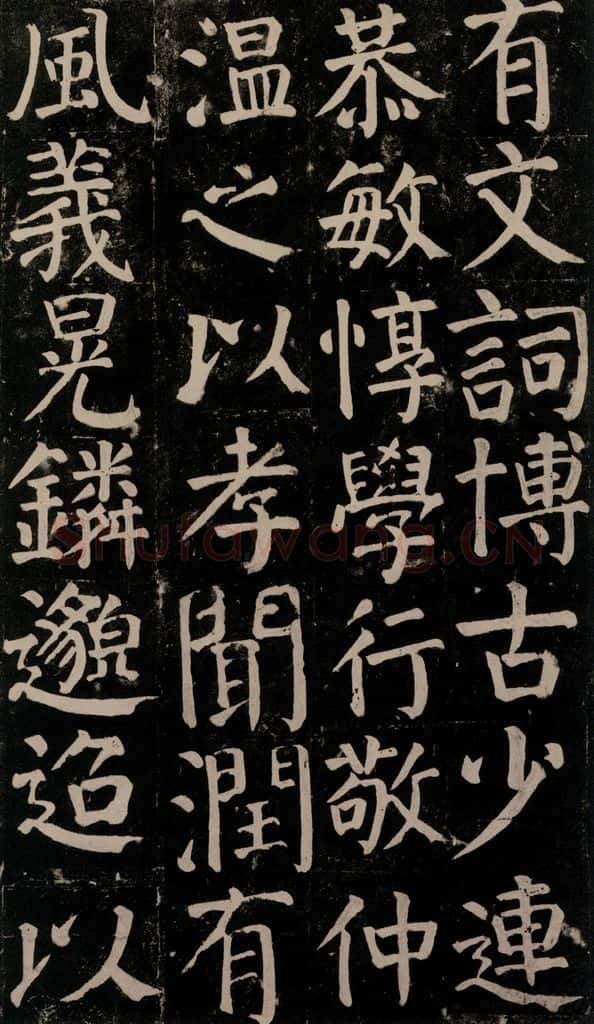 有文詞博古少連
恭敏惇學行敬仲
温之以孝聞潤有
風義晃鏻邈迢以
Shufawang.CN